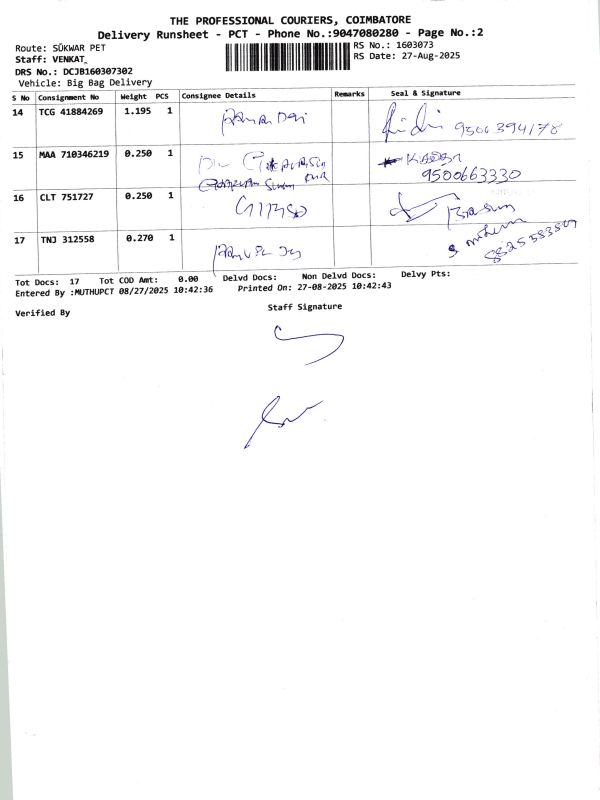 THE PROFESSIONAL COURIERS, COIMBATORE
Delivery Runsheet - PCT - Phone No.:9047080280 - Page No.:2
Route: SUKWAR PET
RS No.: 1603073
Staff: VENKAT
RS Date: 27-Aug-2025
DRS No.: DCJB160307302
Vehicle: Big Bag Delivery
S No Consignment No Weight PCS Consignee Details Remarks Seal & Signature
14 TCG 41884269 1.195 1 9506394178
15 MAA 710346219 0.250 1
9500663330
16 CLT 751727 0.250 1
17 TNJ 312558 0.270 1
Tot Docs: 17 Tot COD Amt: 0.00 Delvd Docs: Non Delvd Docs: Delvy Pts:
Entered By :MUTHUPCT 08/27/2025 10:42:36 Printed On: 27-08-2025 10:42:43
Verified By
Staff Signature